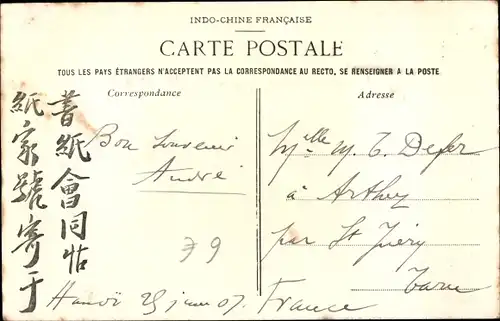 INDO-CHINE FRANÇAISE
CARTE POSTALE
TOUS LES PAYS ÉTRANGERS N'ACCEPTENT PAS LA CORRESPONDANCE AU RECTO, SE RENSEIGNER A LA POSTE
Correspondance
書紙會同怗
紙家號寄于
Bon Souvenir
André
79
Hanoï 25 juin 07.
Adresse
Mlle M. T. Defer
à Arthez
par St Juéry
Tarn
France